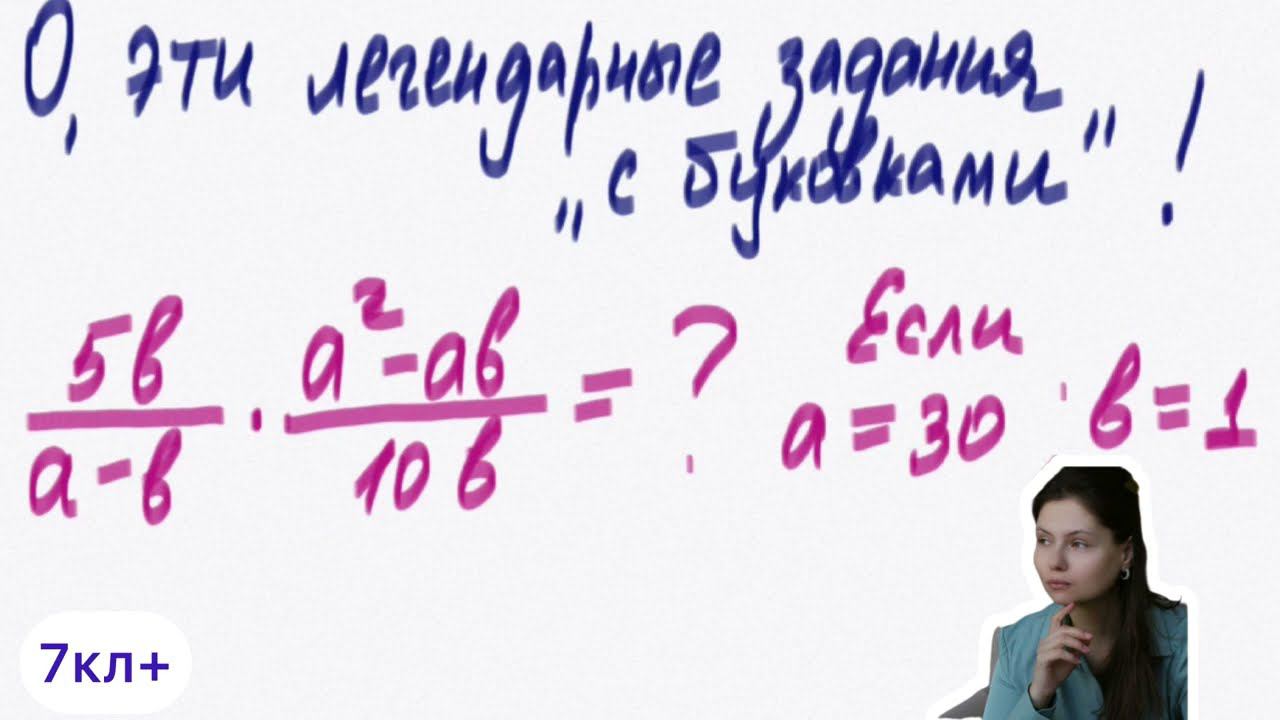 О, эти легендарные задания
„с буковками"!
5в/(а-в) · (а²-ав)/10в = ? Если а=30 в=1
7кл+